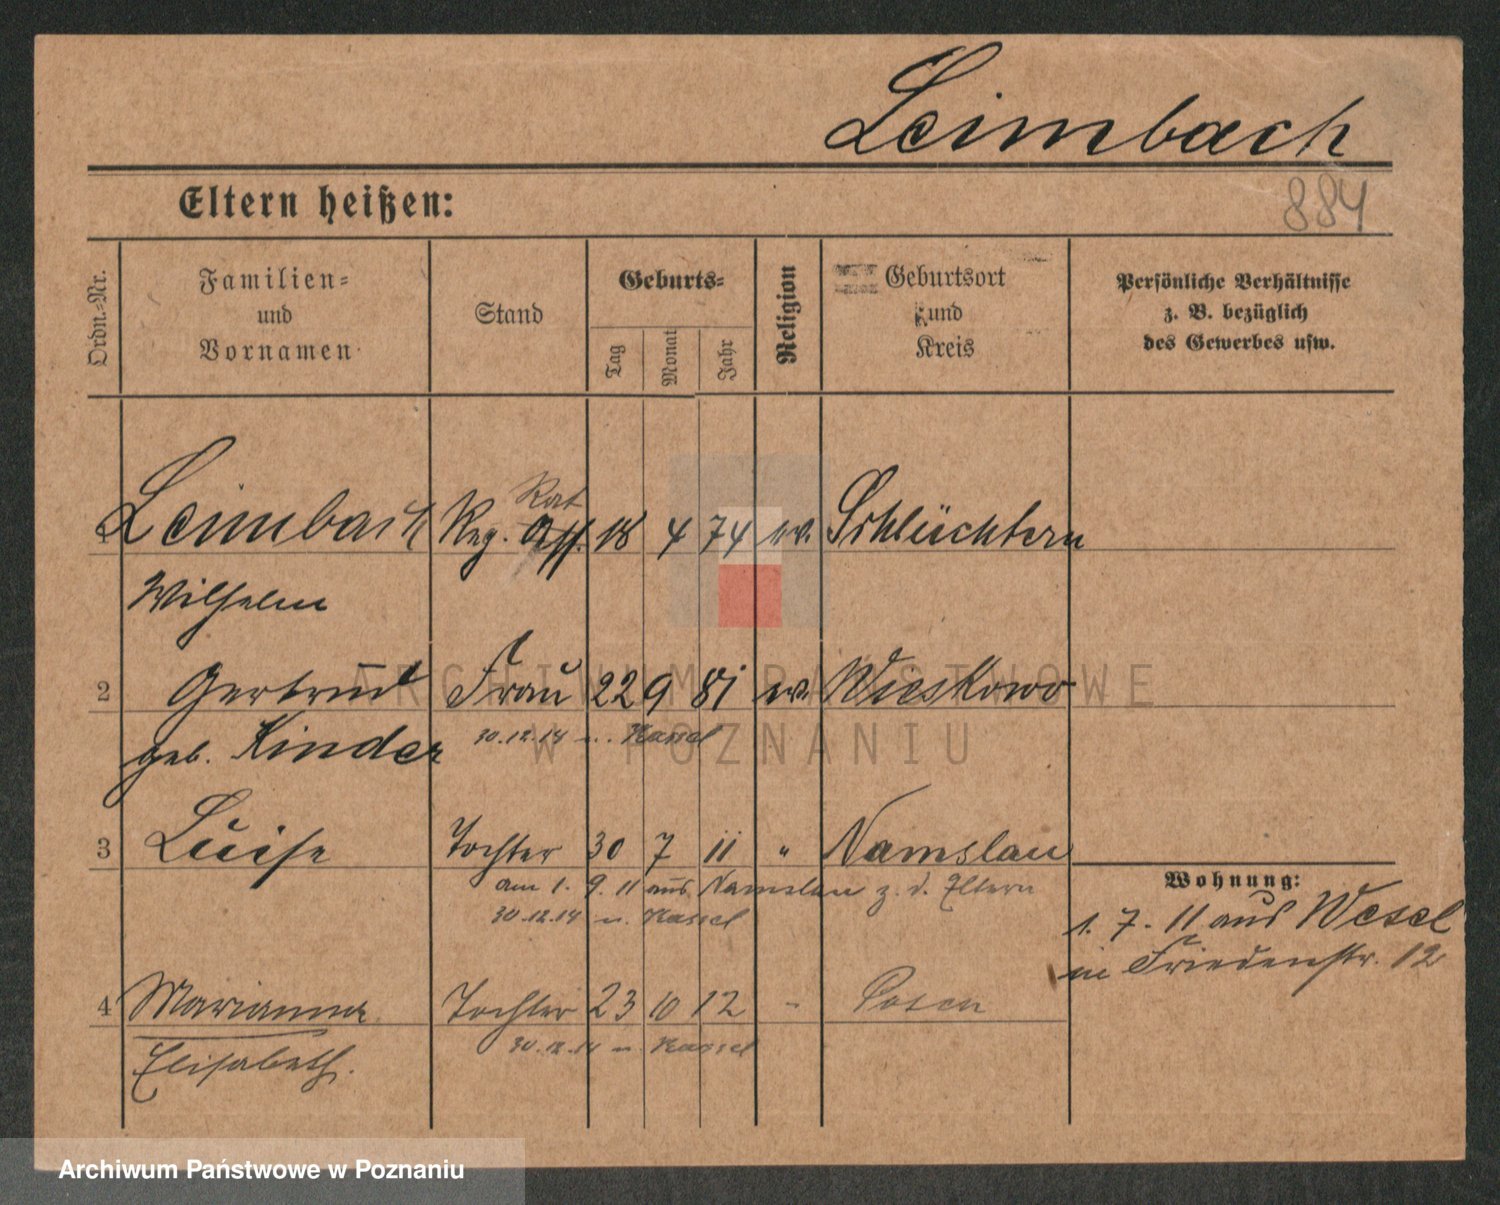 Leimbach
884
Eltern heißen:
Ordn.-Nr.
Familien=
und
Vornamen
Stand
Geburts=
Tag
Monat
Jahr
Religion
Geburtsort
und
Kreis
Persönliche Verhältnisse
z. B. bezüglich
des Gewerbes usw.
Rat
1 Leimbach Reg. Ass. 18 4 74 ev. Schlüchtern
Wilhelm
2 Gertrud Frau 22 9 81 ev. Wieskowo
geb. Kinder 30.12.14 n. Kassel
3 Luise Tochter 30 7 11 " Namslau
am 1. 9. 11 aus Namslau z. d. Eltern
30.12.14 n. Kassel
Wohnung:
1. 7. 11 aus Wesel
in Friedenstr. 12
4 Marianne Tochter 23 10 12 " Posen
Elisabeth. 30.12.14 n. Kassel
ARCHIWUM PAŃSTWOWE
W POZNANIU
Archiwum Państwowe w Poznaniu